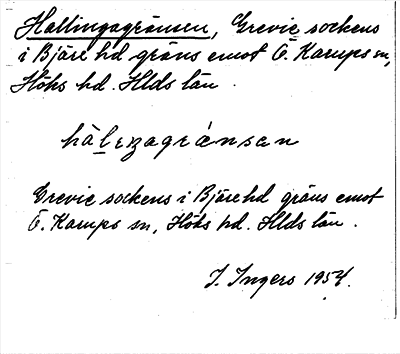 Hallingagränsen, Grevie sockens
i Bjäre hd gräns emot Ö. Karups sn,
Höks hd. Hlds län.
Grevie sockens i Bjäre hd gräns emot
Ö. Karups sn, Höks hd. Hlds län.
I. Ingers 1954.